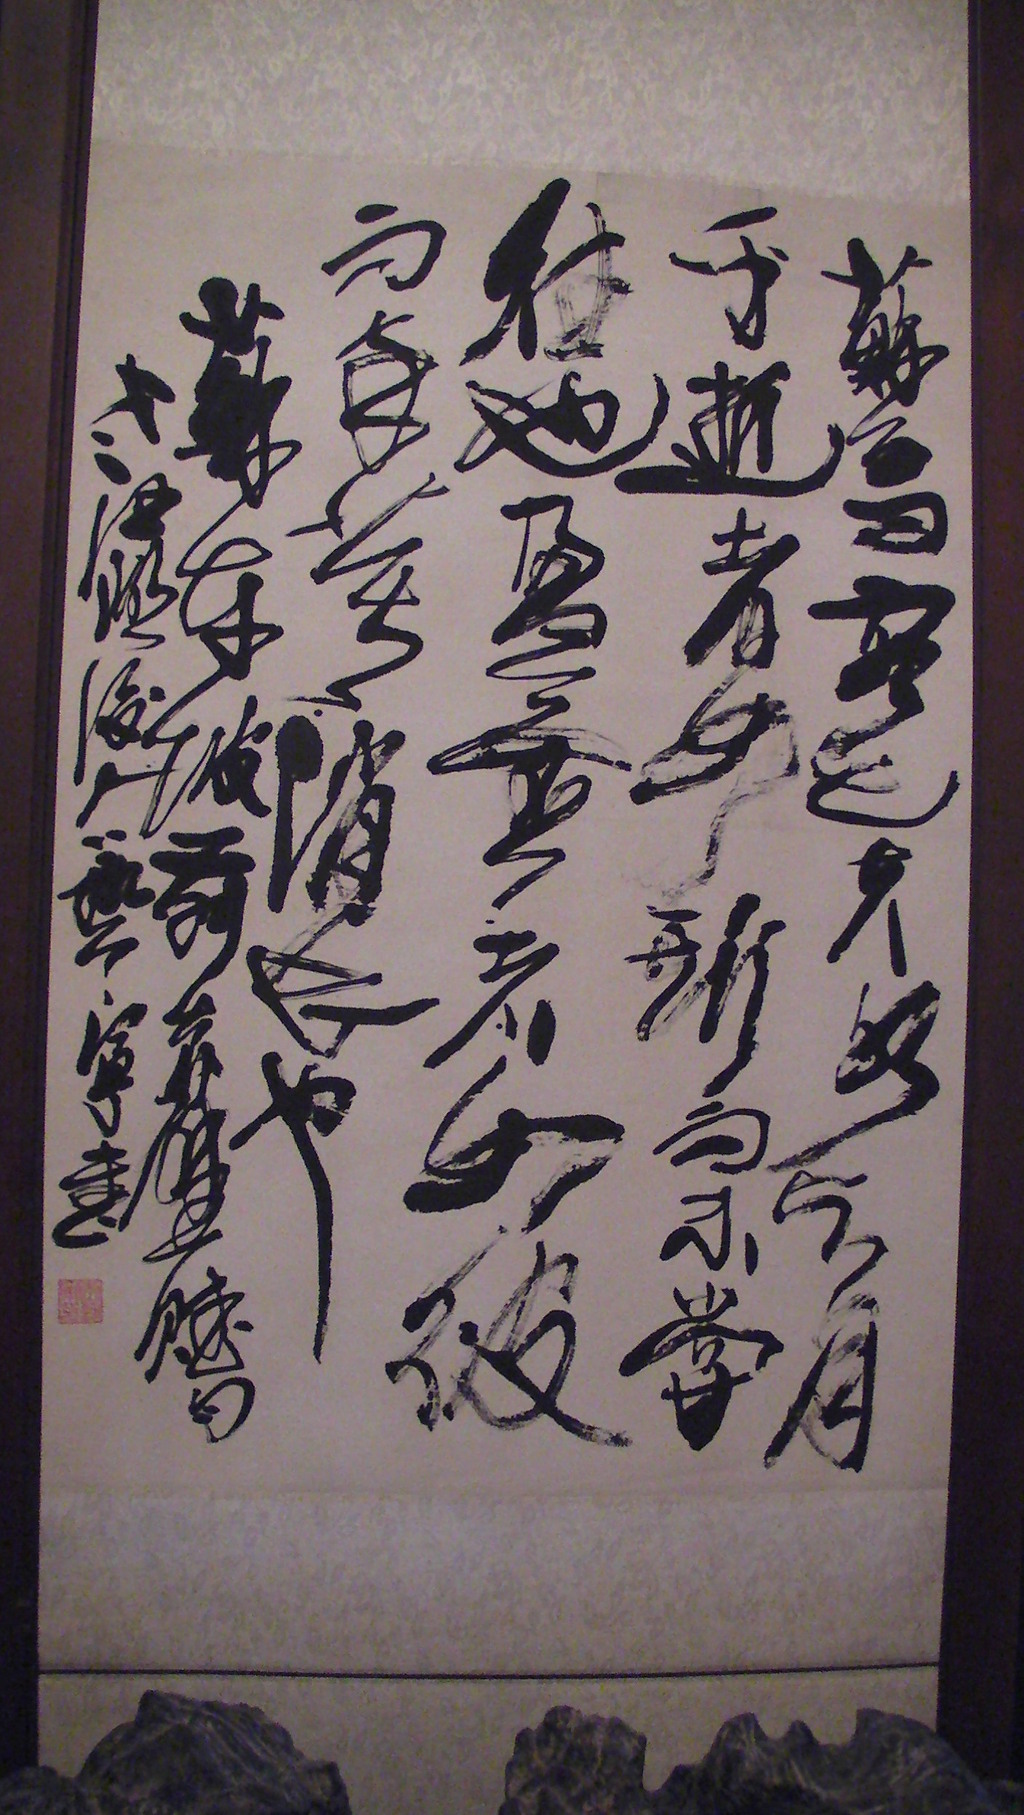 蘇子曰客亦知夫水與月
乎逝者如斯而未嘗
往也盈虛者如彼
而卒莫消長也
蘇東坡前赤壁賦句
書